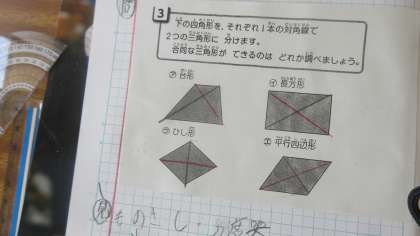 3
下の四角形を、それぞれ1本の対角線で
2つの三角形に 分けます。
合同な三角形が できるのは どれか調べましょう。
㋐ 台形
㋑ 長方形
㋒ ひし形
㋓ 平行四辺形